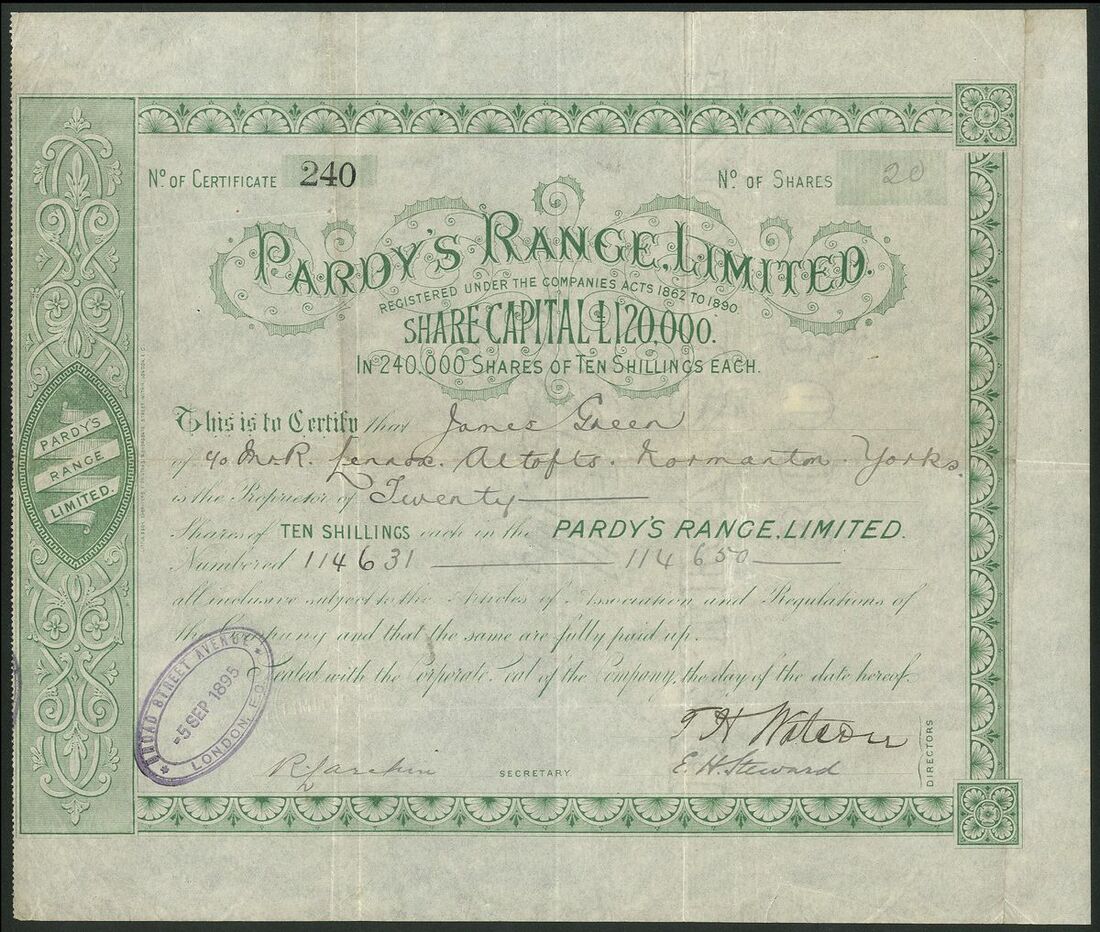 No. OF CERTIFICATE 240
No. OF SHARES 20
PARDY'S RANGE, LIMITED.
REGISTERED UNDER THE COMPANIES ACTS 1862 TO 1890.
SHARE CAPITAL £120,000.
IN 240,000 SHARES OF TEN SHILLINGS EACH.
This is to Certify that James Green
of c/o Mr R. Lennox. Altofts. Normanton. Yorks.
is the Proprietor of Twenty
Shares of TEN SHILLINGS each in the PARDY'S RANGE, LIMITED.
Numbered 114631 114650
all inclusive subject to the Articles of Association and Regulations of
the Company and that the same are fully paid up.
Sealed with the Corporate Seal of the Company, the day of the date hereof.
PARDY'S
RANGE
LIMITED.
BROAD STREET AVENUE
-5 SEP 1895
LONDON, E.C.
T H Watson
E. H. Steward
DIRECTORS
SECRETARY